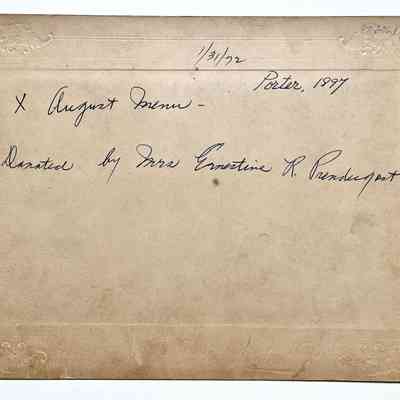 1/31/72
Porter, 1897
X August Menu -
Donated by Mrs Ernestine R. Prendergast